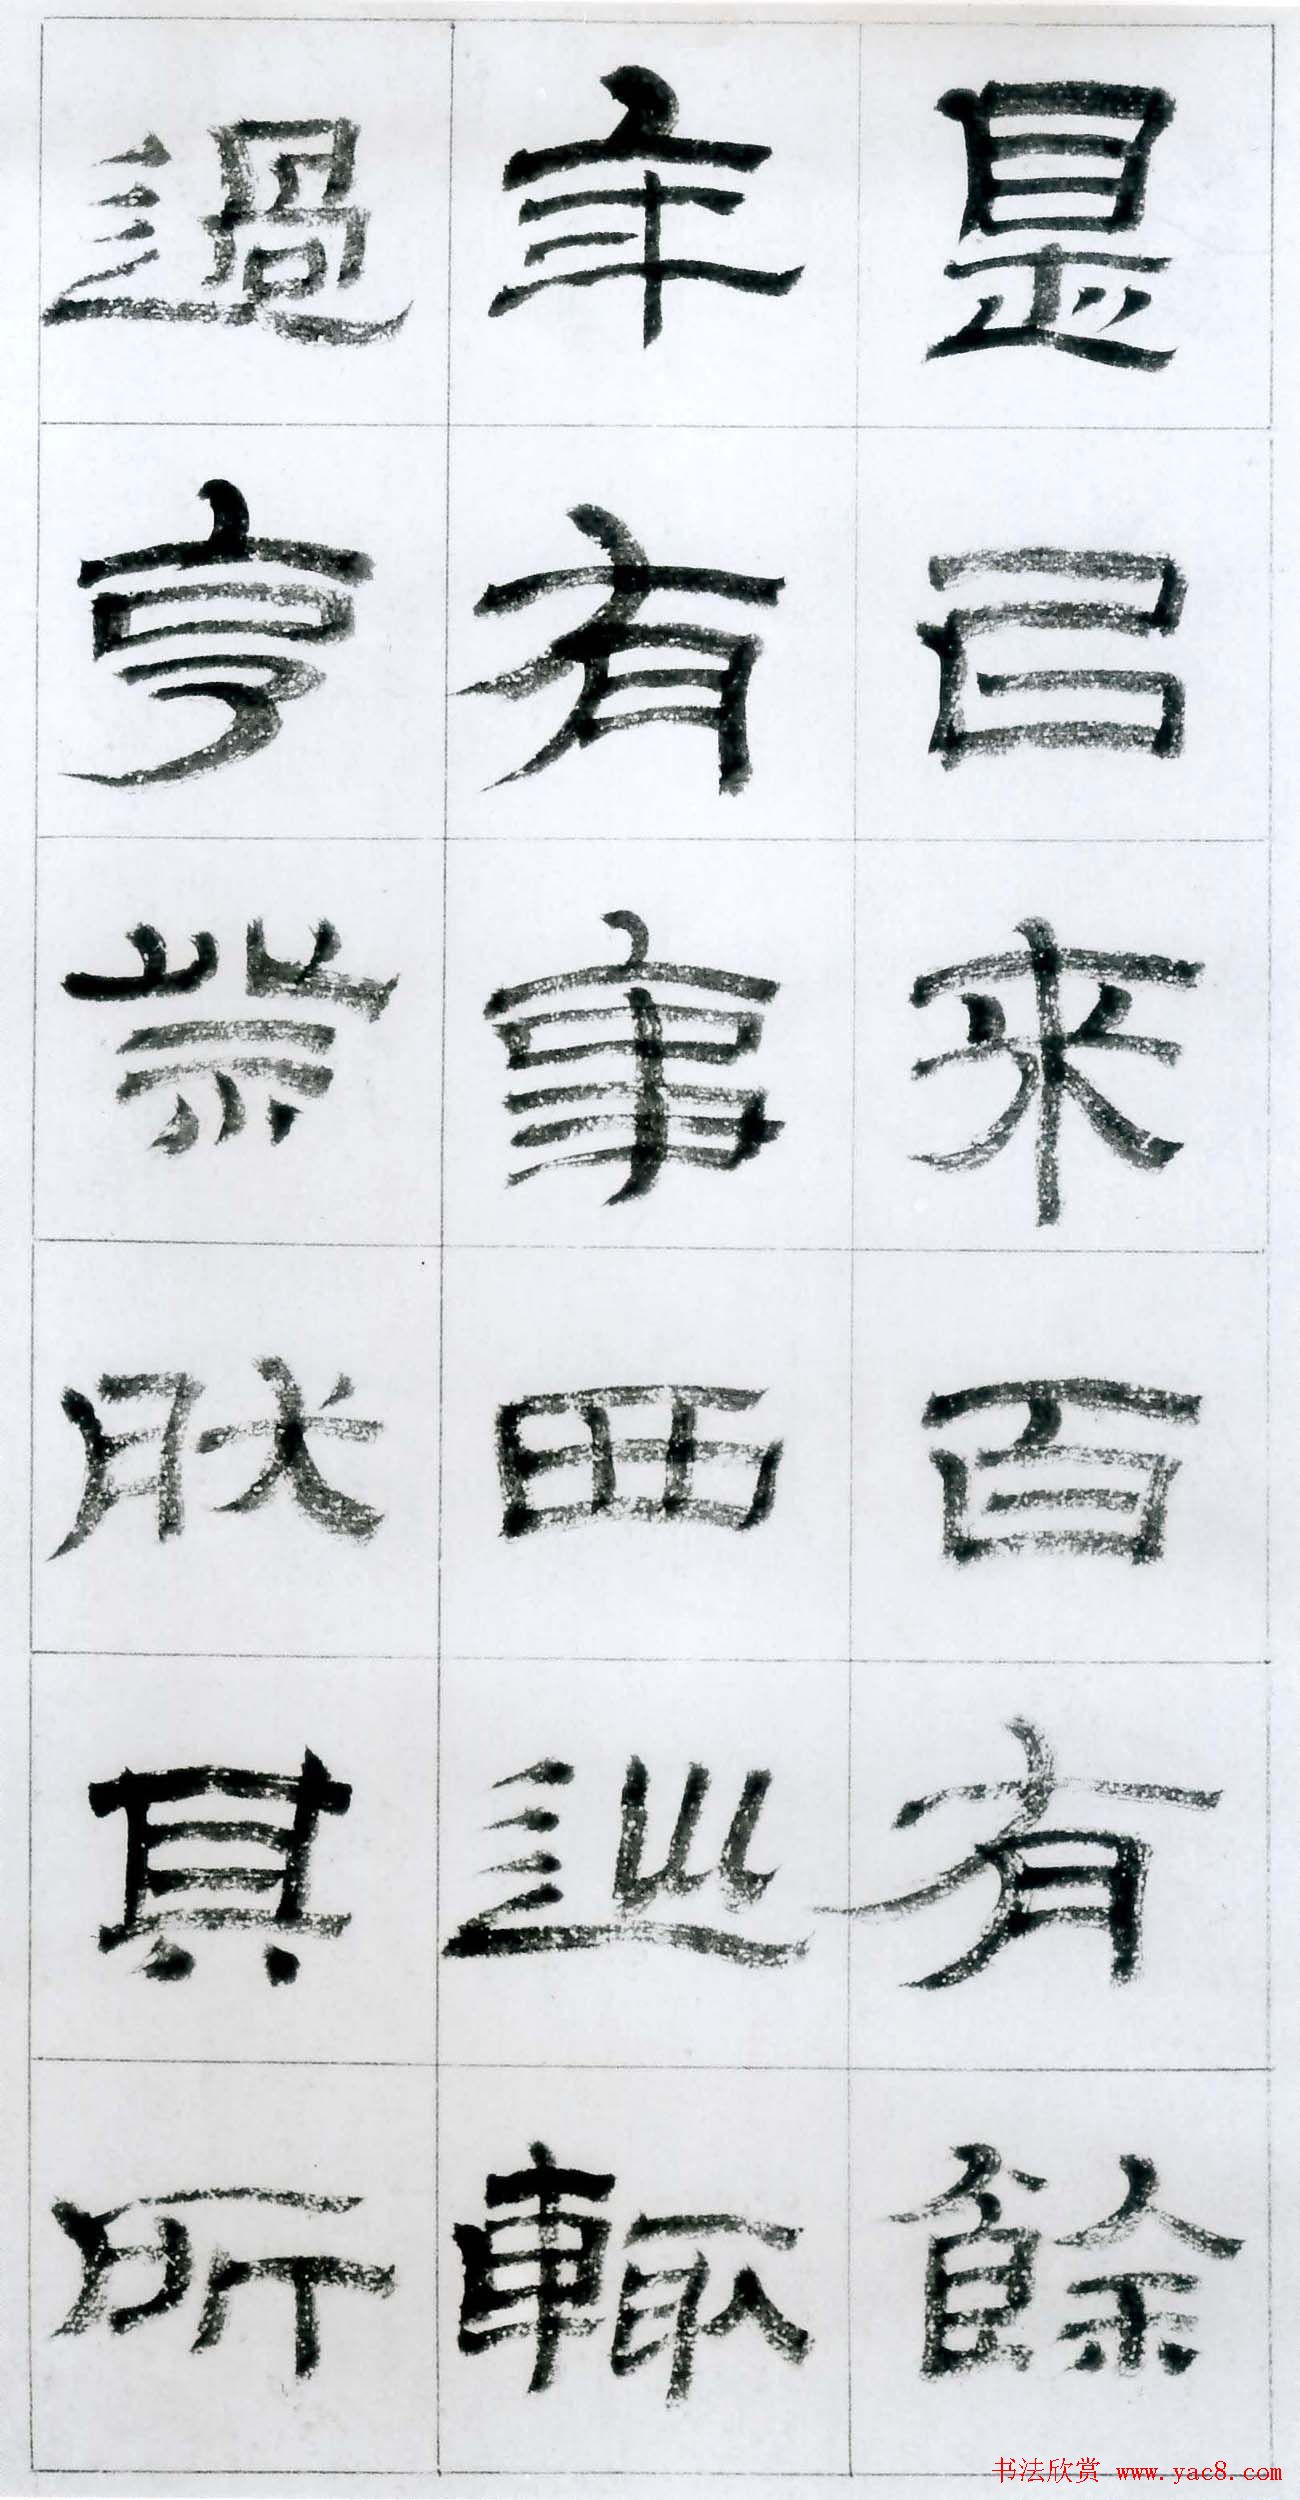 是㠯来百有餘
年有事西巡輒
過亨祭肰其所
书法欣赏 www.yac8.com